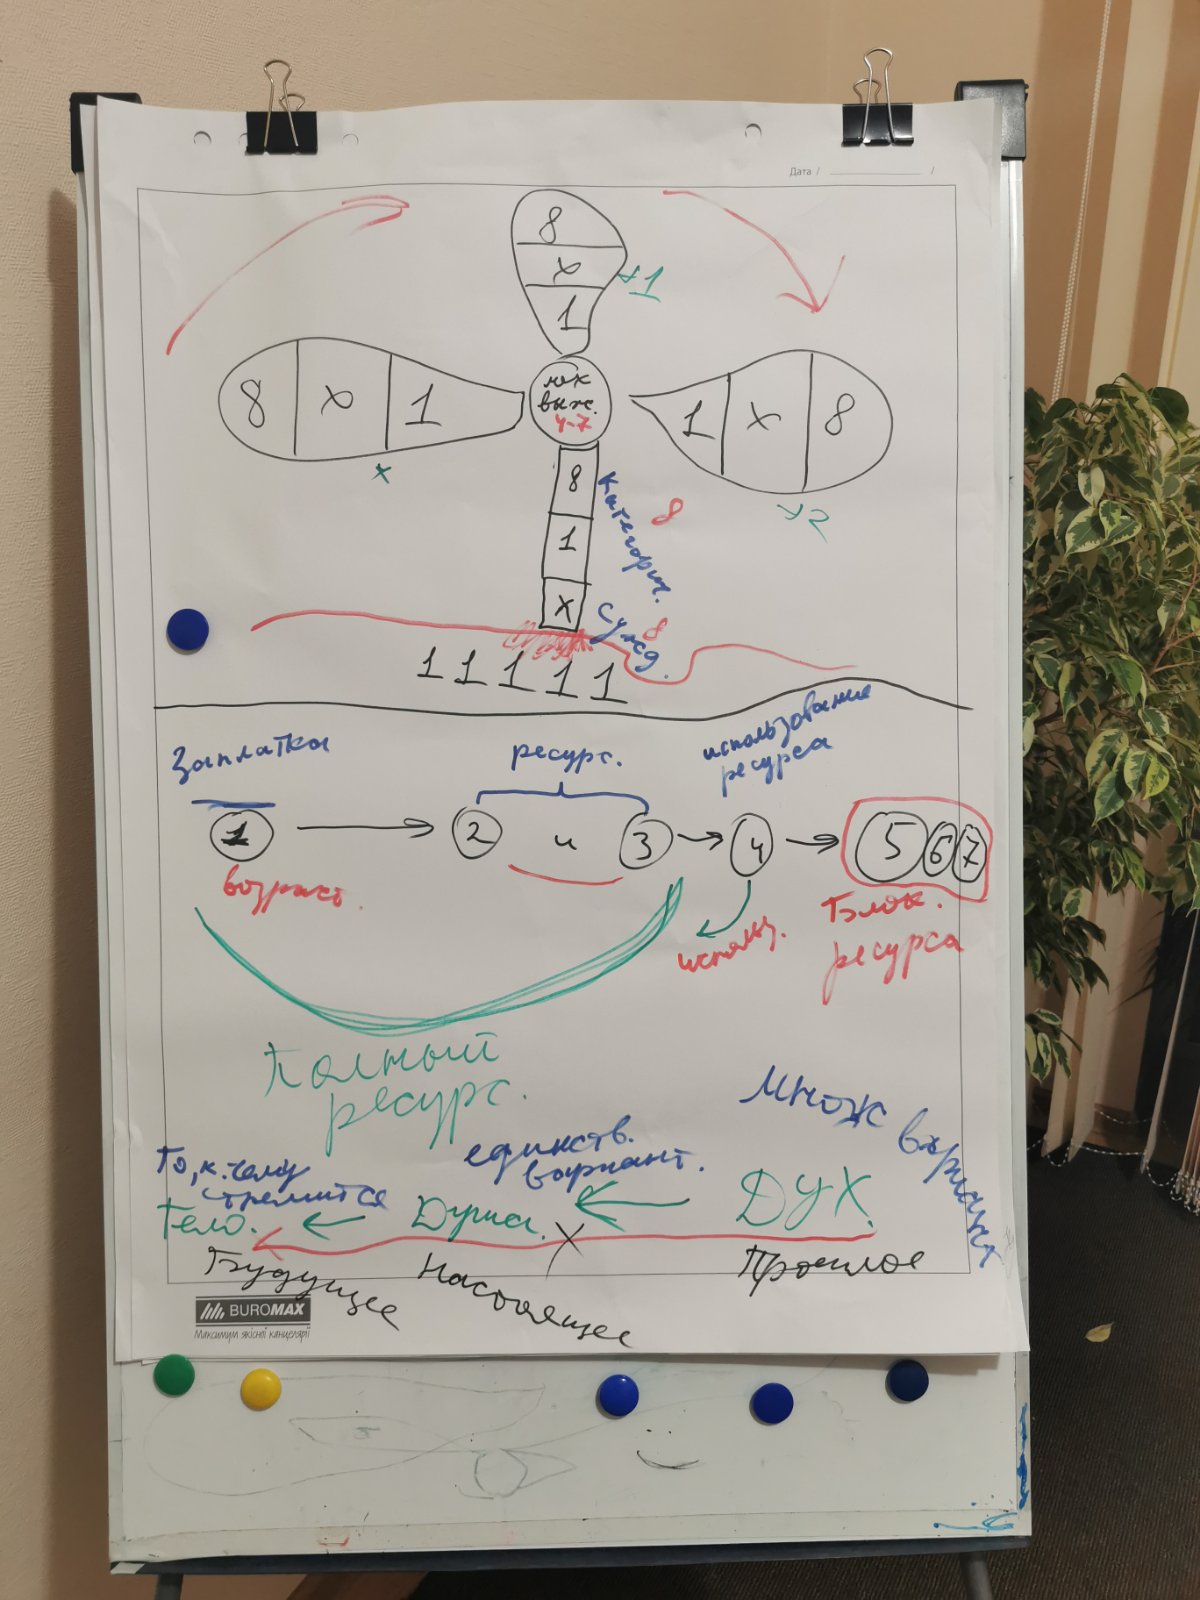 Дата / /
8
х
1
х1
8 х 1
мех
выж.
4-7
1 х 8
х
х2
8
1
х
Категорич.
8
Сужд.
8
1 1 1 1 1
Заплатка
ресурс.
использование
ресурса
1 2 и 3 4 5 6 7
возраст.
использ.
Блок.
ресурса
Полный
ресурс.
Множ
вариант
То, к чему
стремится
единств.
вариант.
Тело.
Душа.
ДУХ.
Будущее
Настоящее
Прошлое
BUROMAX
Максимум якісної канцелярії